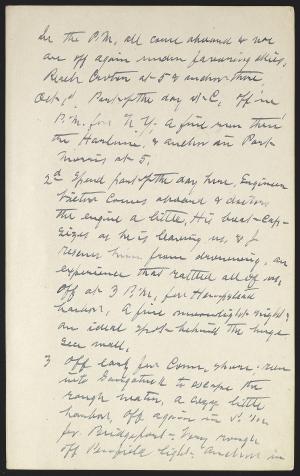 In the P.M, all come aboard & we
are off again under favouring skies,
Reach Croton at 5 & anchor there
Oct 1st, Part of the day at C, Off in
P.M. for N.Y. A fine run thru'
the Harlem, & anchor in Port
Morris at 5,
2d Spend part of the day here, Engineer
comes aboard & doctors
the engine a little, His boat cap-
sizes as he is leaving us, & I
rescue him from drowning, an
experience that rattled all of us,
Off at 3 P.M, for Hempstead
harbor, A fine moonlight night &
an ideal spot behind the huge
sea wall,
3 Off early for Conn, shore, run
into to escape the
rough water, a cozy little
harbor, Off again in
for Bridgeport - Very rough
off Penfield light - anchor in